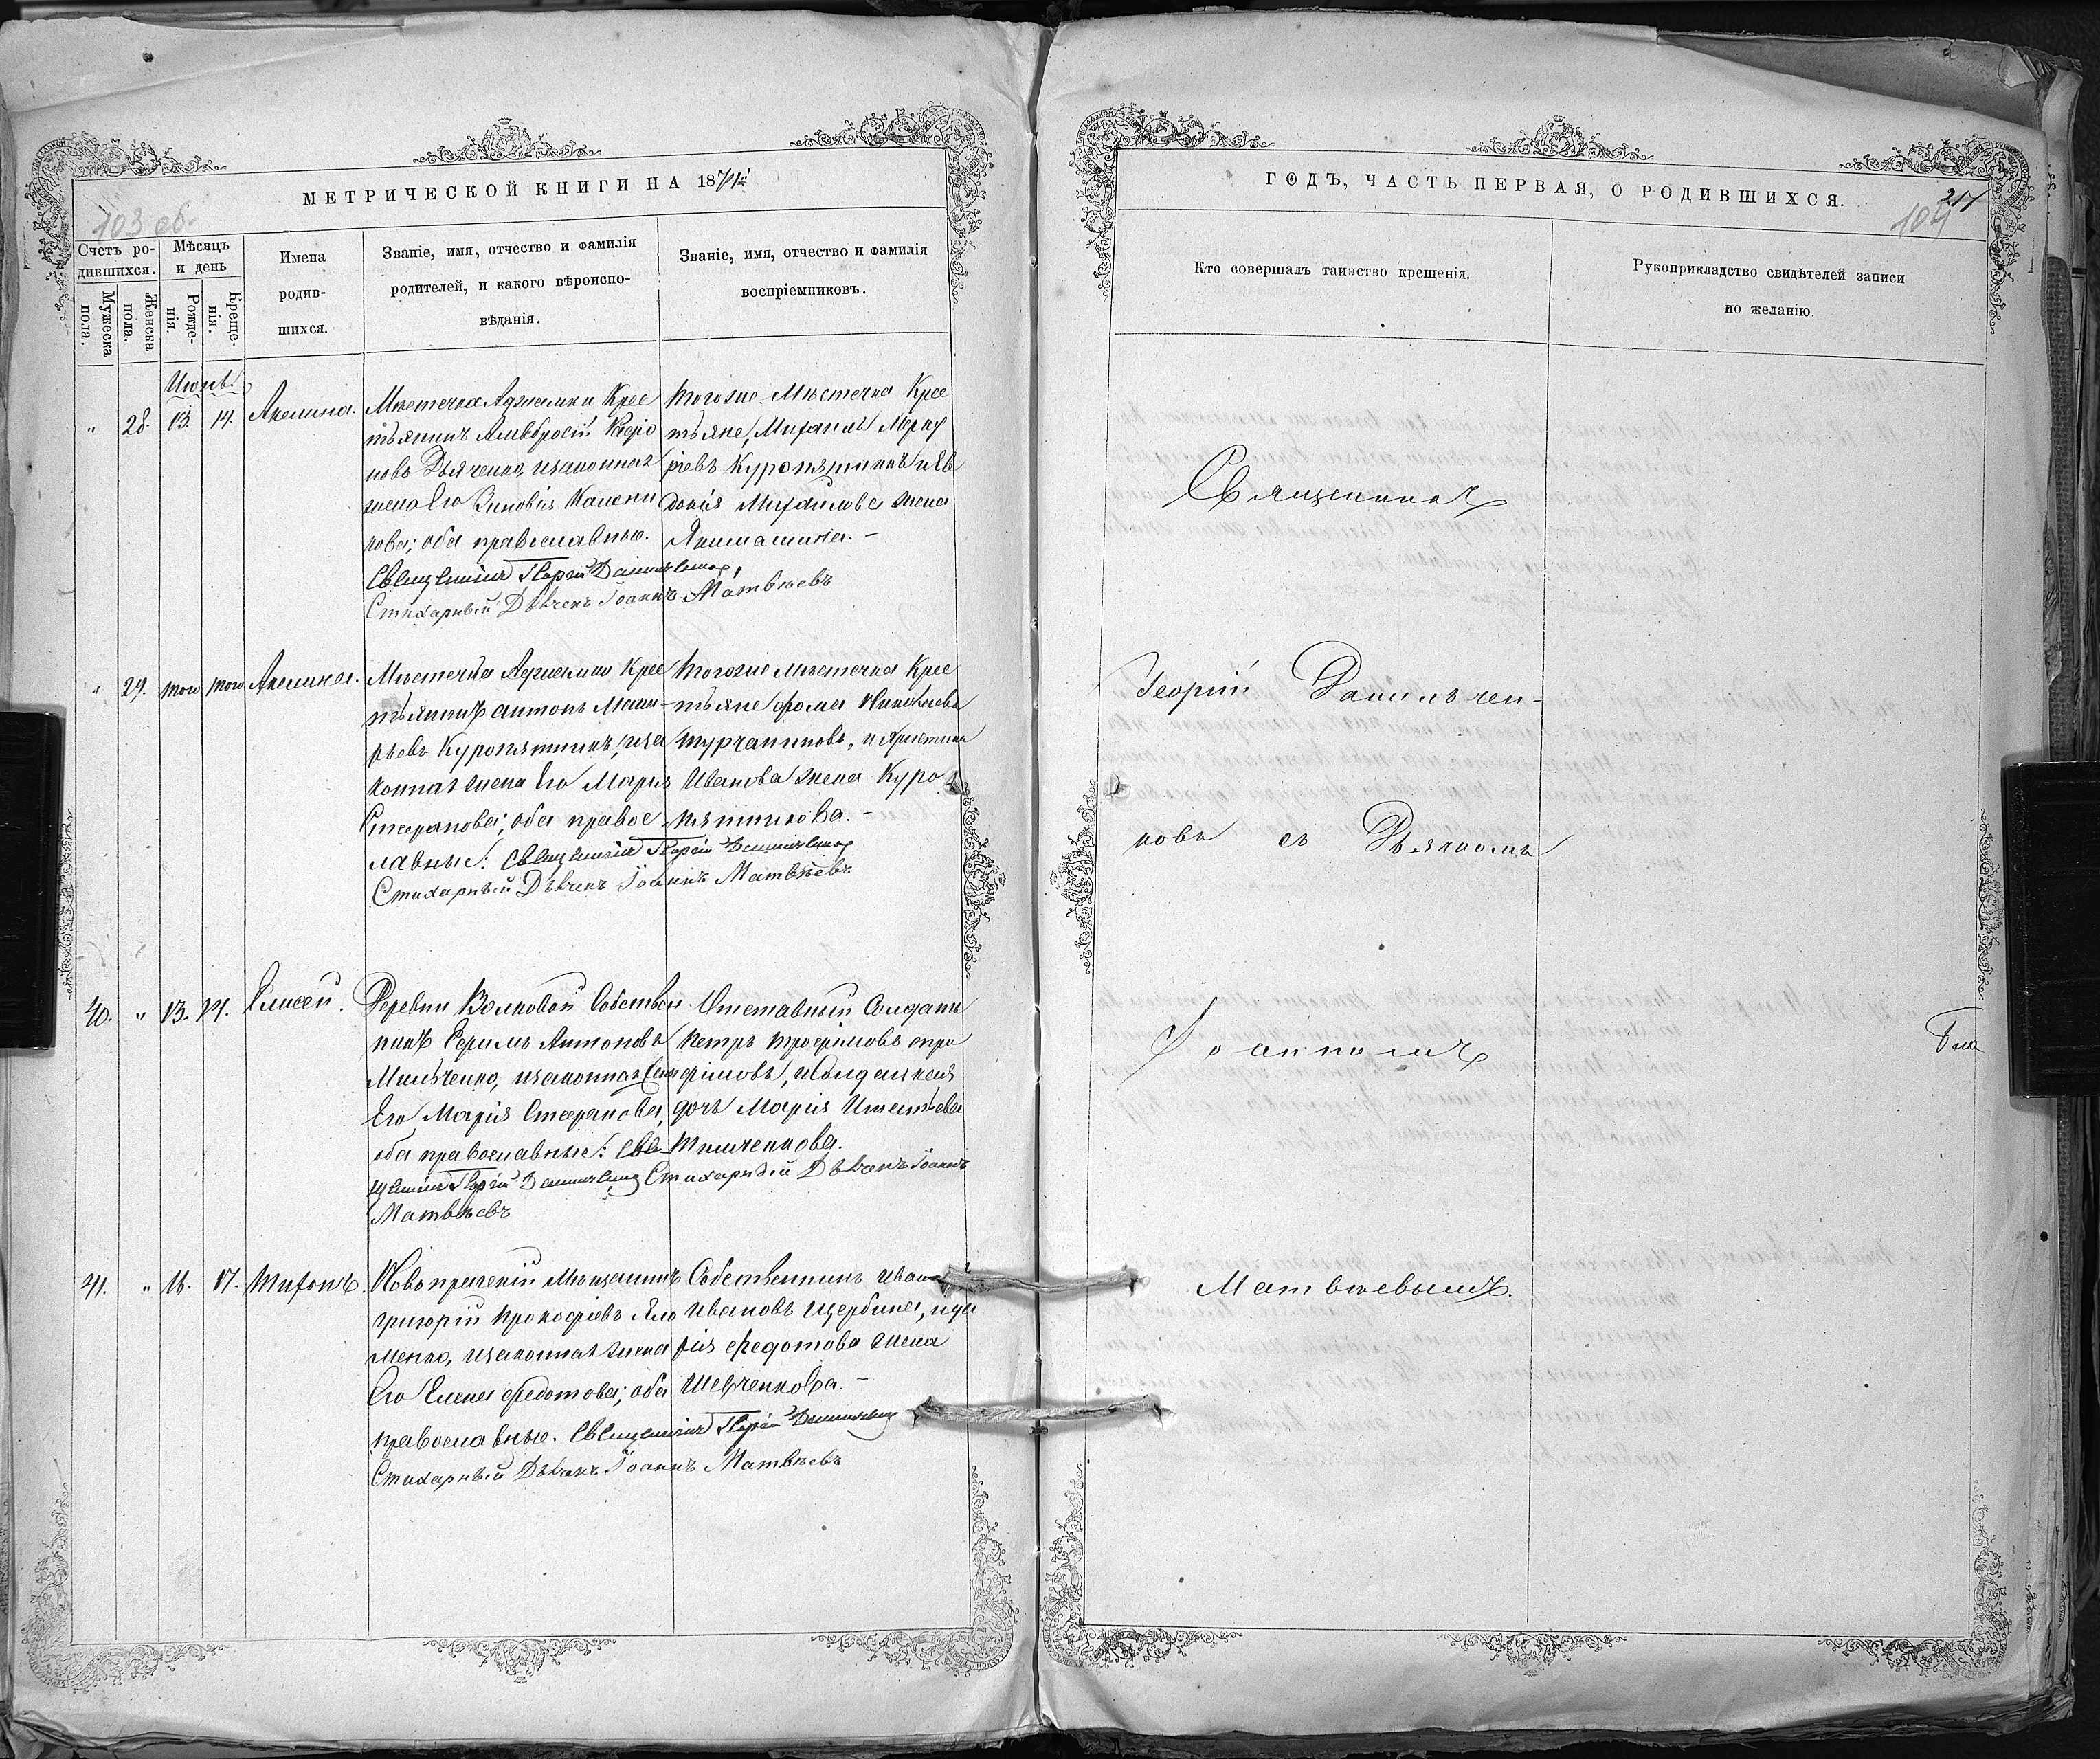 МЕТРИЧЕСКОЙ КНИГИ НА 1871й
103 об.
Счетъ ро-
дившихся.
Мужеска
пола.
Женска
пола.
Мѣсяцъ
и день
Рожде-
нія.
Креще-
нія.
Имена
родив-
шихся.
Званіе, имя, отчество и фамилія
родителей, и какого вѣроиспо-
вѣданія.
Званіе, имя, отчество и фамилія
воспріемниковъ.
Июнь.
" 28. 13. 14. Акелина.
Мѣстечка Аджамки Крес
тьянинъ Амвбросій
новъ Дьяченко, изаконная
жена Его Зиновія
кова; оба православные.
Священникъ Георгій Данильченков,
Стихарный Дьячекъ Іоаннъ Матвѣевъ
тогоже Мѣстечка Крес
тьяне, Михаилъ Мерку
ріевъ Куропятникъ и Ев
докія Михайлова жена
" 29. того того Акелина.
Мѣстечка Аджамки Крес
тьянинъ антонъ Мака-
рьевъ Куропятникъ, иза
конная жена Его Марія
Стефанова; оба правос
лавные: Священникъ Георгій Данильченков
Стихарный Дьячекъ Іоаннъ Матвѣевъ
тогоже мѣстечка Крес
тьяне фома Николаевъ
турчаниновъ, и Христина
Иванова жена Куро
пятникова.-
40. " 13. 14. Елисей.
Деревни Волковой Собствен
никъ Ефимъ Антоновъ
Мильченко, изаконная жена
Его Марія Стефанова,
оба православные: Свя-
щенникъ Георгій Данильченков Стихарный Дьячекъ Іоаннъ
Матвѣевъ
Отставный Солдатъ
петръ трофімовъ тро
фімовъ, и Солдатская
дочь Марія Игнатьева
тимченкова.
41. " 16. 17. тихонъ.
Новопражскій Мѣщанинъ
григорій прокофіевъ Яло
менко, изаконная жена
Его Елена Федотова; оба
православные. Священникъ Георгій Данильченков
Стихарный Дьячекъ Іоаннъ Матвѣевъ
Собственникъ Иванъ
Ивановъ щербина, и да
рія федотова жена
Шевченкова.-
ГОДЪ, ЧАСТЬ ПЕРВАЯ, О РОДИВШИХСЯ.
211
104
Кто совершалъ таинство крещенія.
Рукоприкладство свидѣтелей записи
по желанію.
Священникъ
Георгій Данильчен-
ковъ съ Дьячкомъ
Іоанномъ
Матвѣевымъ.